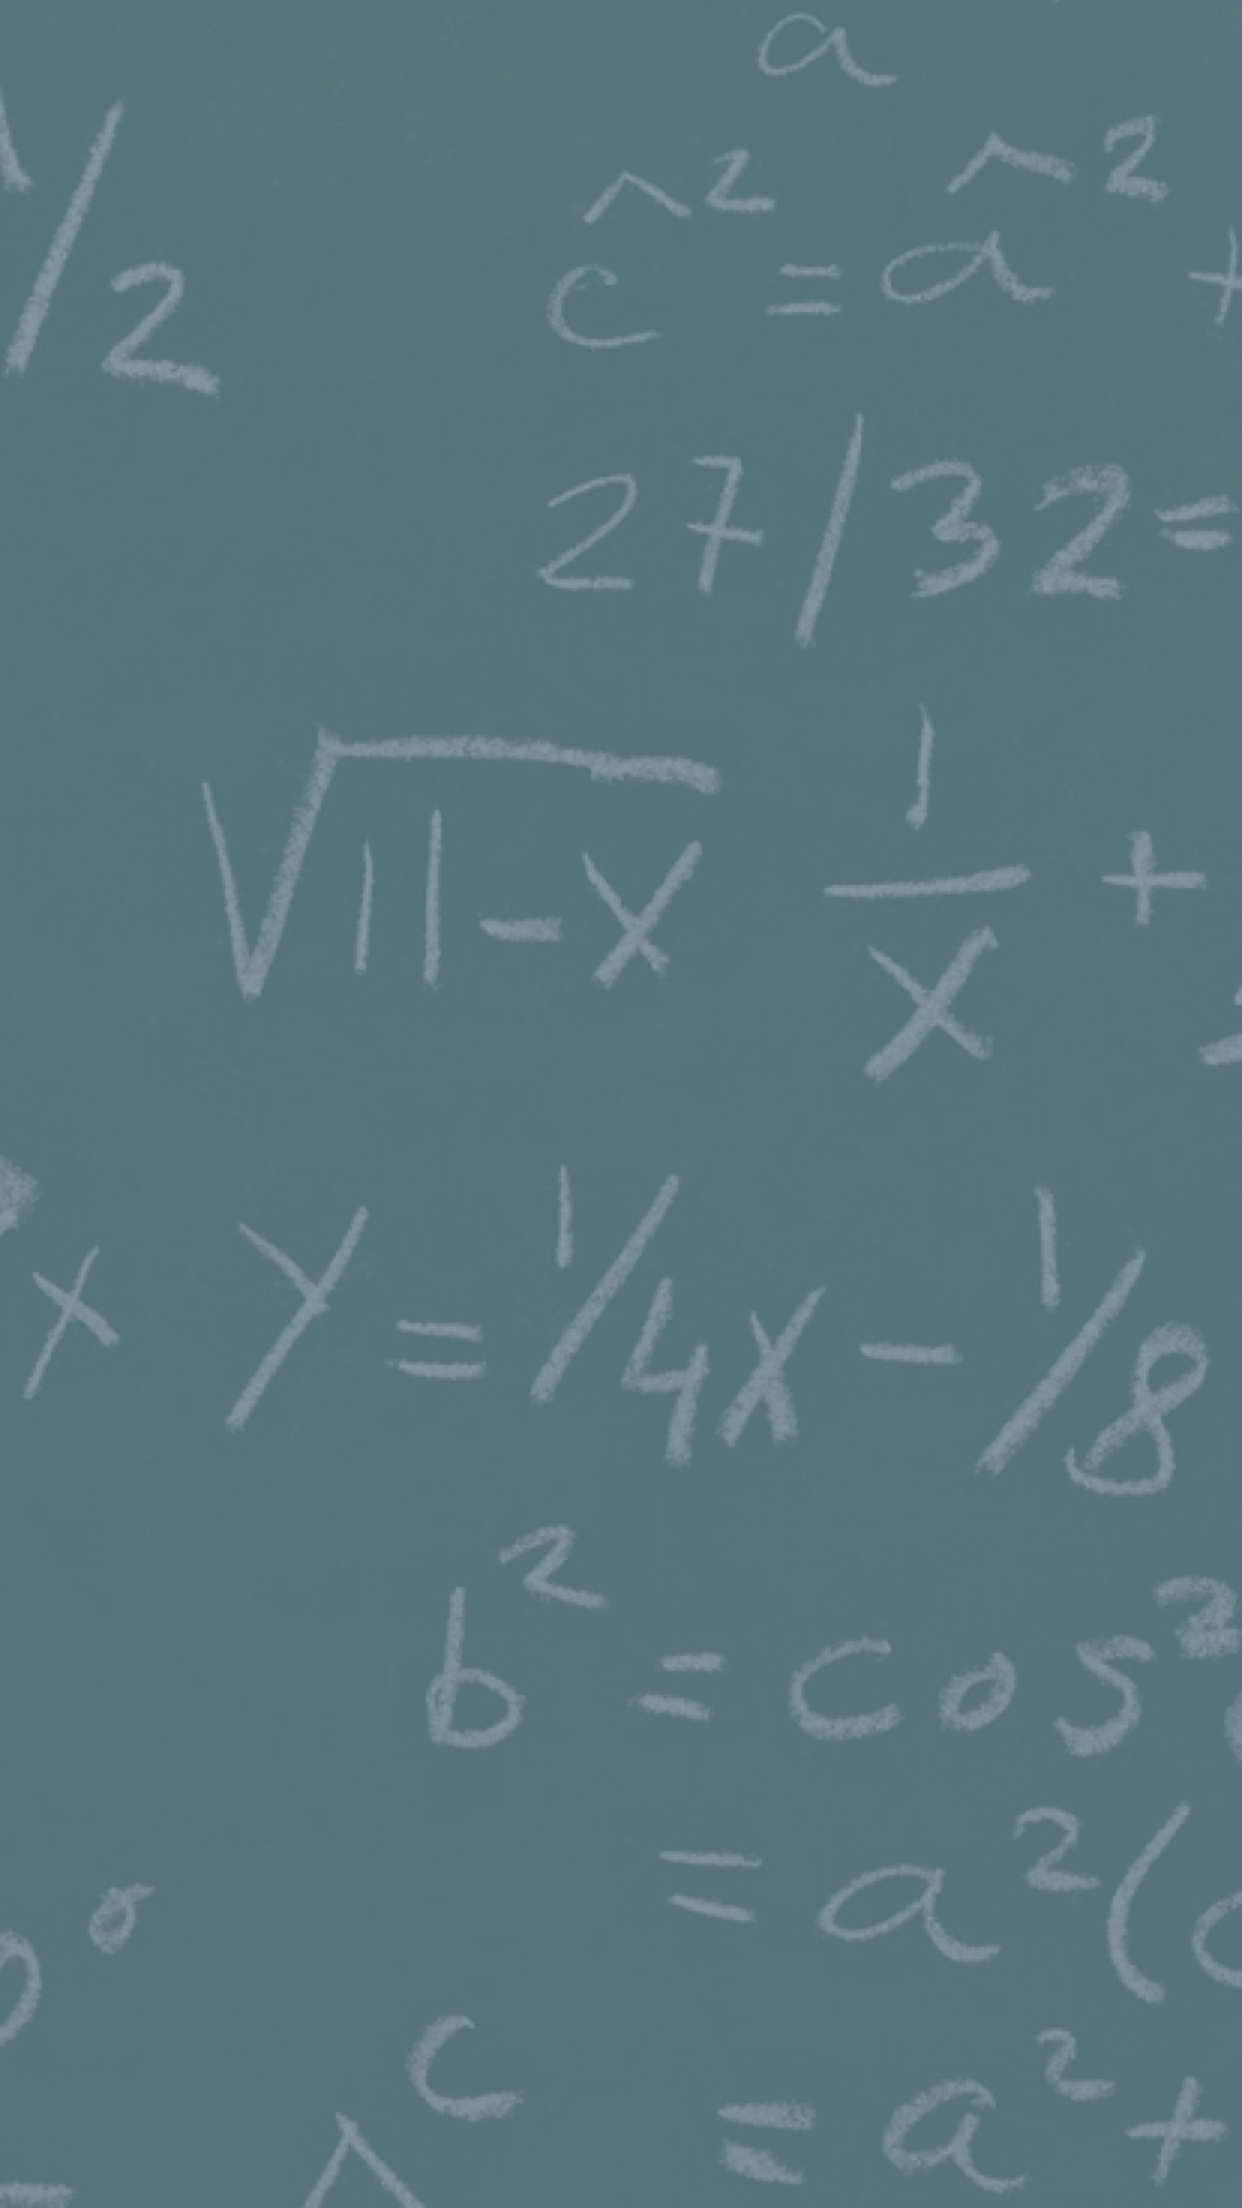 a
/2
^2 ^2
c = a +
27/32=
√11-x 1/x +
x y = 1/4x - 1/8
b² = cos²
= a² (
°
c
= a² +